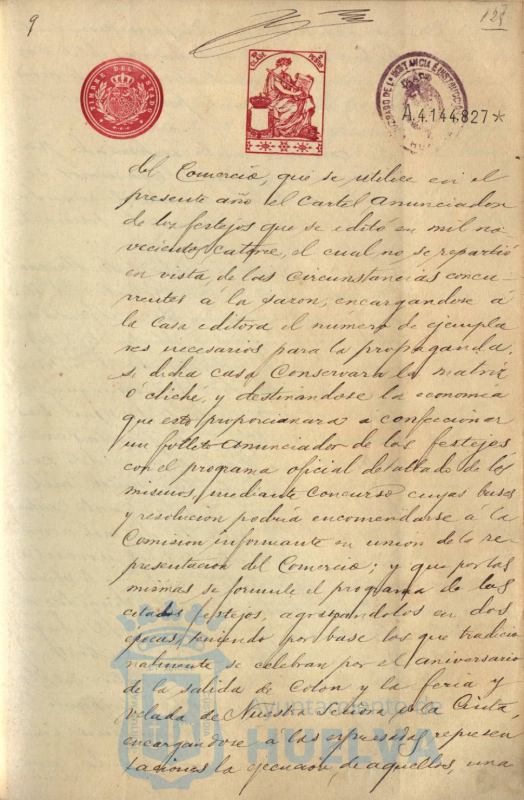 9
123
TIMBRE DEL ESTADO
CLASE
PESO
JUZGADO DE 1ª INSTANCIA É INSTRUCCION
HU
A.4.144.827*
del Comercio, que se utilice en el
presente año el cartel anunciador
de los festejos que se editó en mil no-
vecientos catorce, el cual no se repartió
en vista de las circunstancias concu-
rrentes a la sazon, encargandose á
la casa editora el numero de ejempla
res necesarios para la propaganda,
si dicha casa conservara la matriz
ó cliché, y destinandose la economia
que esto proporcionara a confeccionar
un folleto anunciador de los festejos
con el programa oficial detallado de los
mismos, mediante concurso cuyas bases
y resolucion podria encomendarse á la
Comision informante en union de la re-
presentacion del Comercio; y que por las
mismas se formule el programa de los
citados festejos, agrupandolos en dos
epocas, teniendo por base los que tradicio
nalmente se celebran por el aniversario
de la salida de Colon y la feria y
velada de Nuestra Señora de la Cinta,
encargandose a las expresadas represen
taciones la ejecucion de aquellos, una
Ayuntamiento de
HUELVA